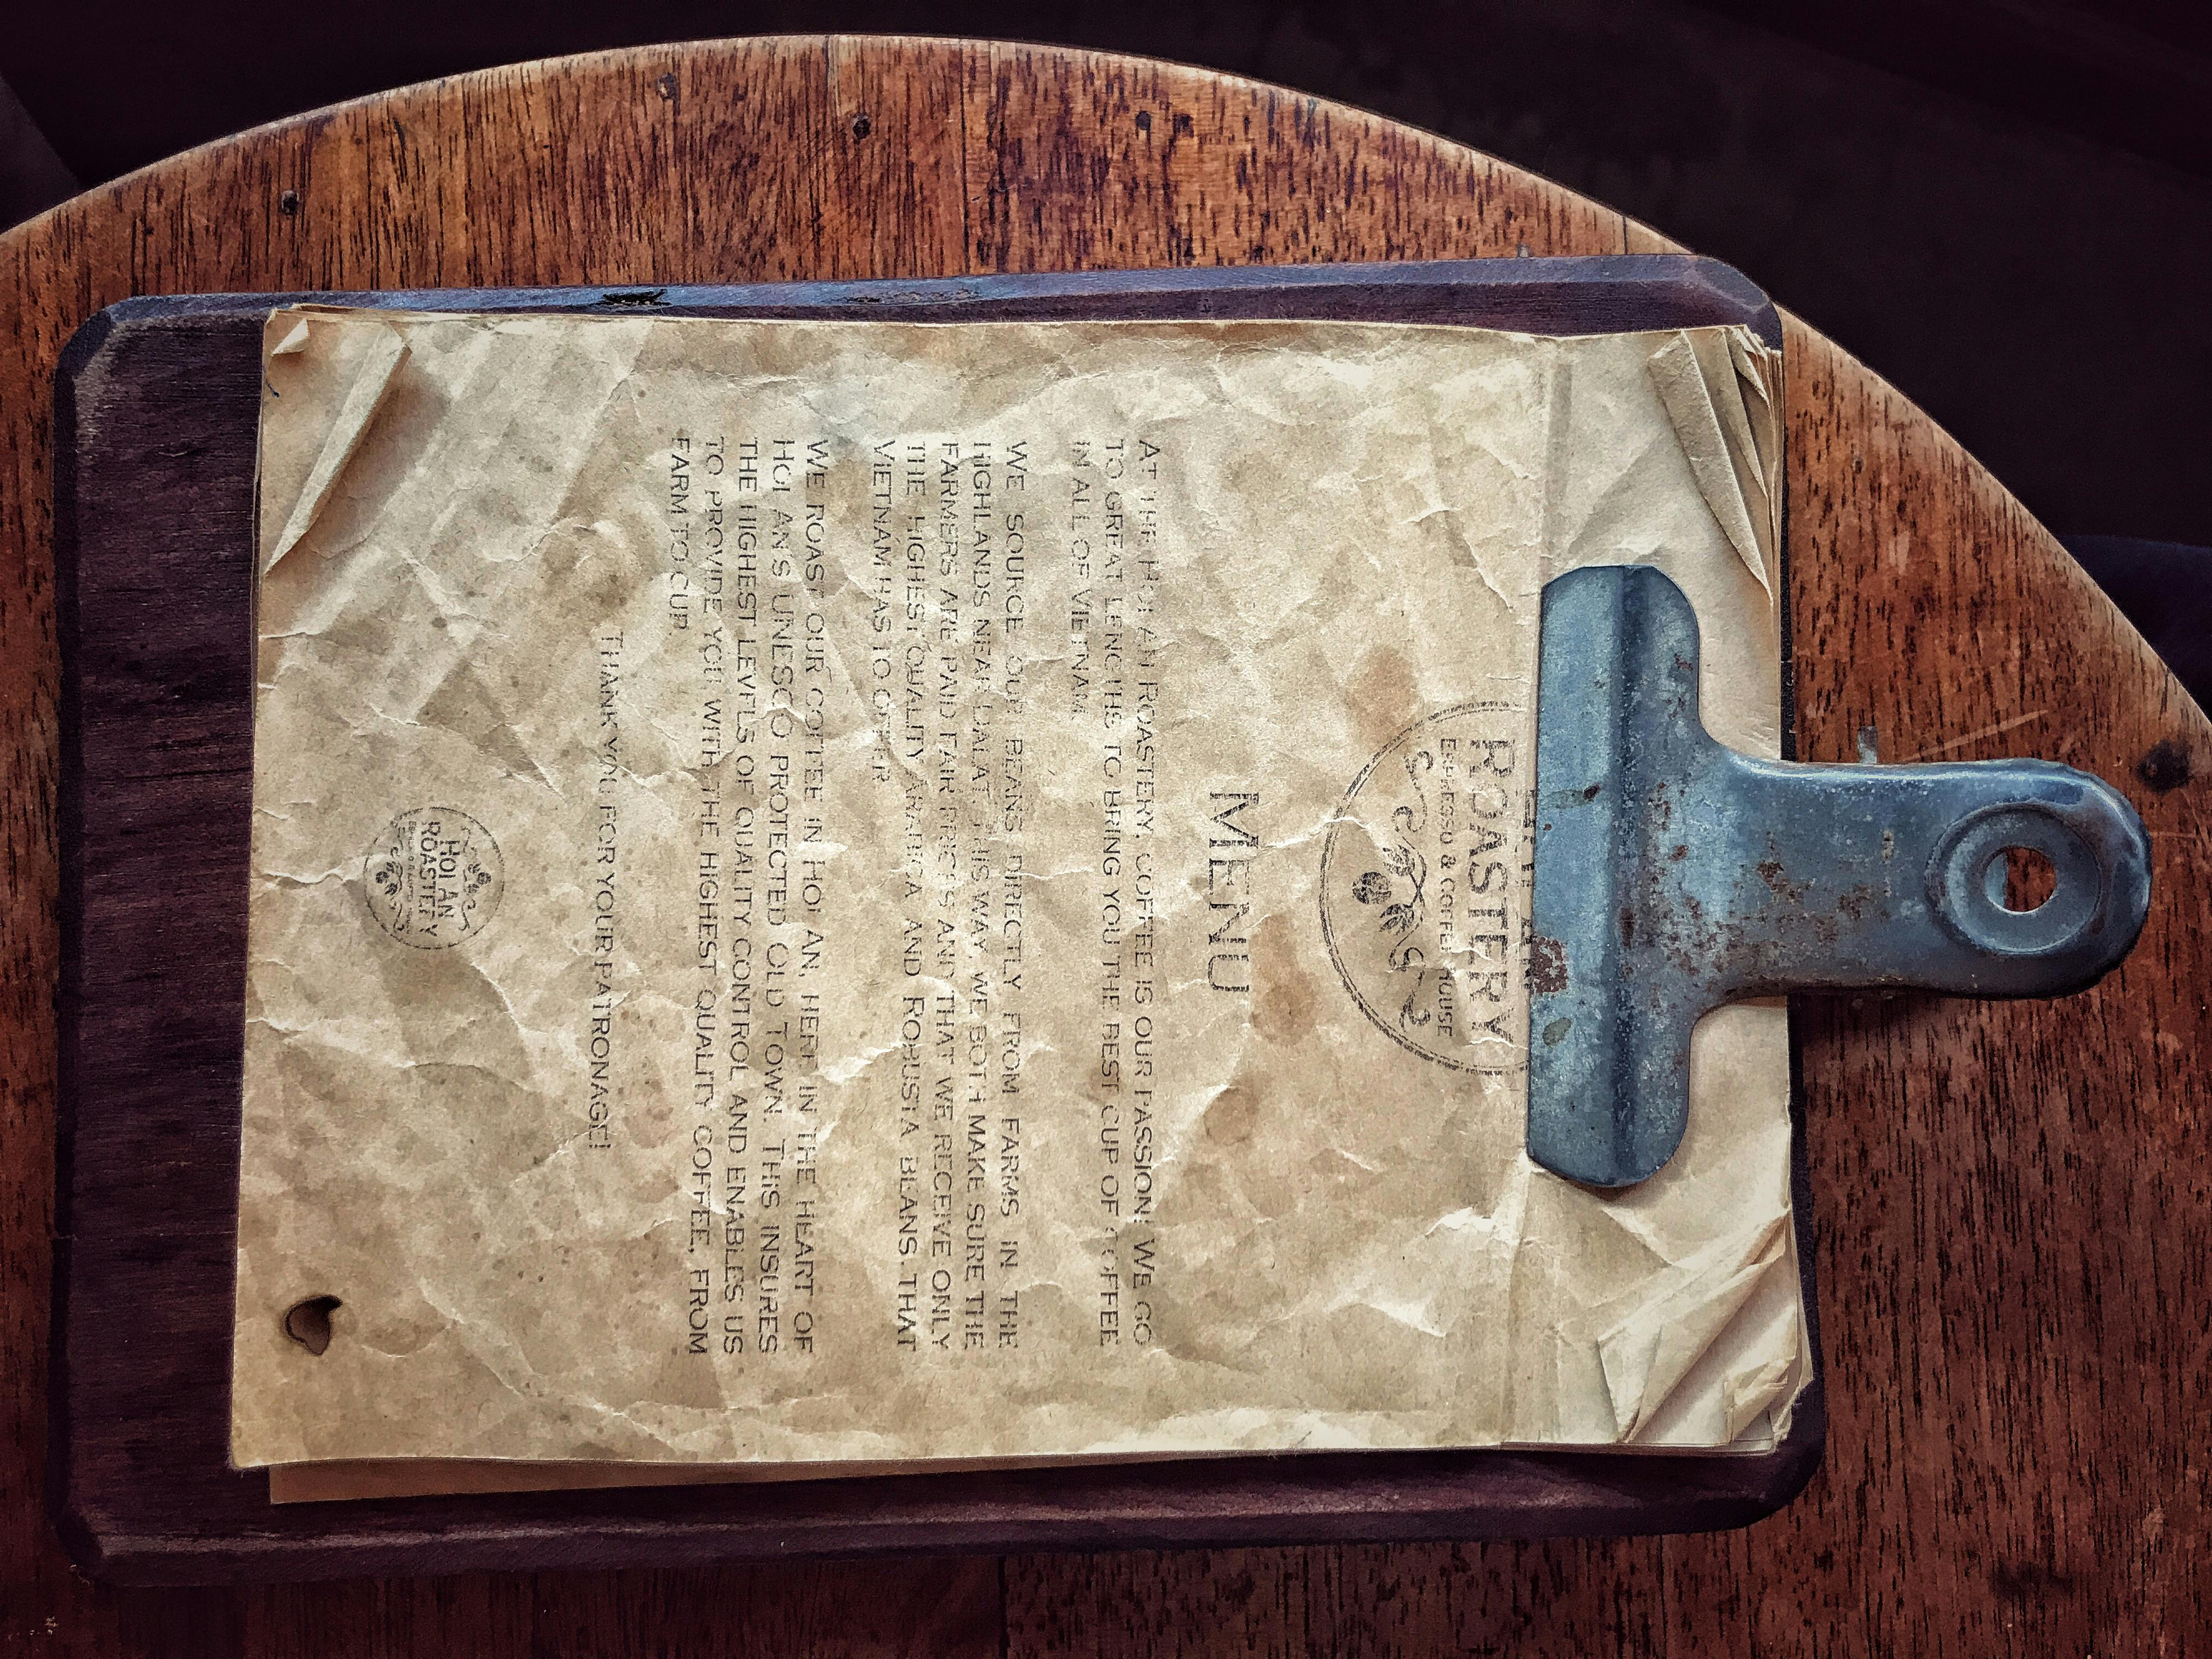 ROASTERY
ESPRESSO & COFFEE HOUSE
MENU
AT THE HOI AN ROASTERY, COFFEE IS OUR PASSION! WE GO
TO GREAT LENGTHS TO BRING YOU THE BEST CUP OF COFFEE
IN ALL OF VIETNAM.
WE SOURCE OUR BEANS DIRECTLY FROM FARMS IN THE
HIGHLANDS NEAR DALAT. THIS WAY, WE BOTH MAKE SURE THE
FARMERS ARE PAID FAIR PRICES AND THAT WE RECEIVE ONLY
THE HIGHEST QUALITY ARABICA AND ROBUSTA BEANS THAT
VIETNAM HAS TO OFFER
WE ROAST OUR COFFEE IN HOI AN, HERE IN THE HEART OF
HOI AN'S UNESCO PROTECTED OLD TOWN. THIS INSURES
THE HIGHEST LEVELS OF QUALITY CONTROL AND ENABLES US
TO PROVIDE YOU WITH THE HIGHEST QUALITY COFFEE, FROM
FARM TO CUP.
THANK YOU FOR YOUR PATRONAGE!
HOI AN
ROASTERY